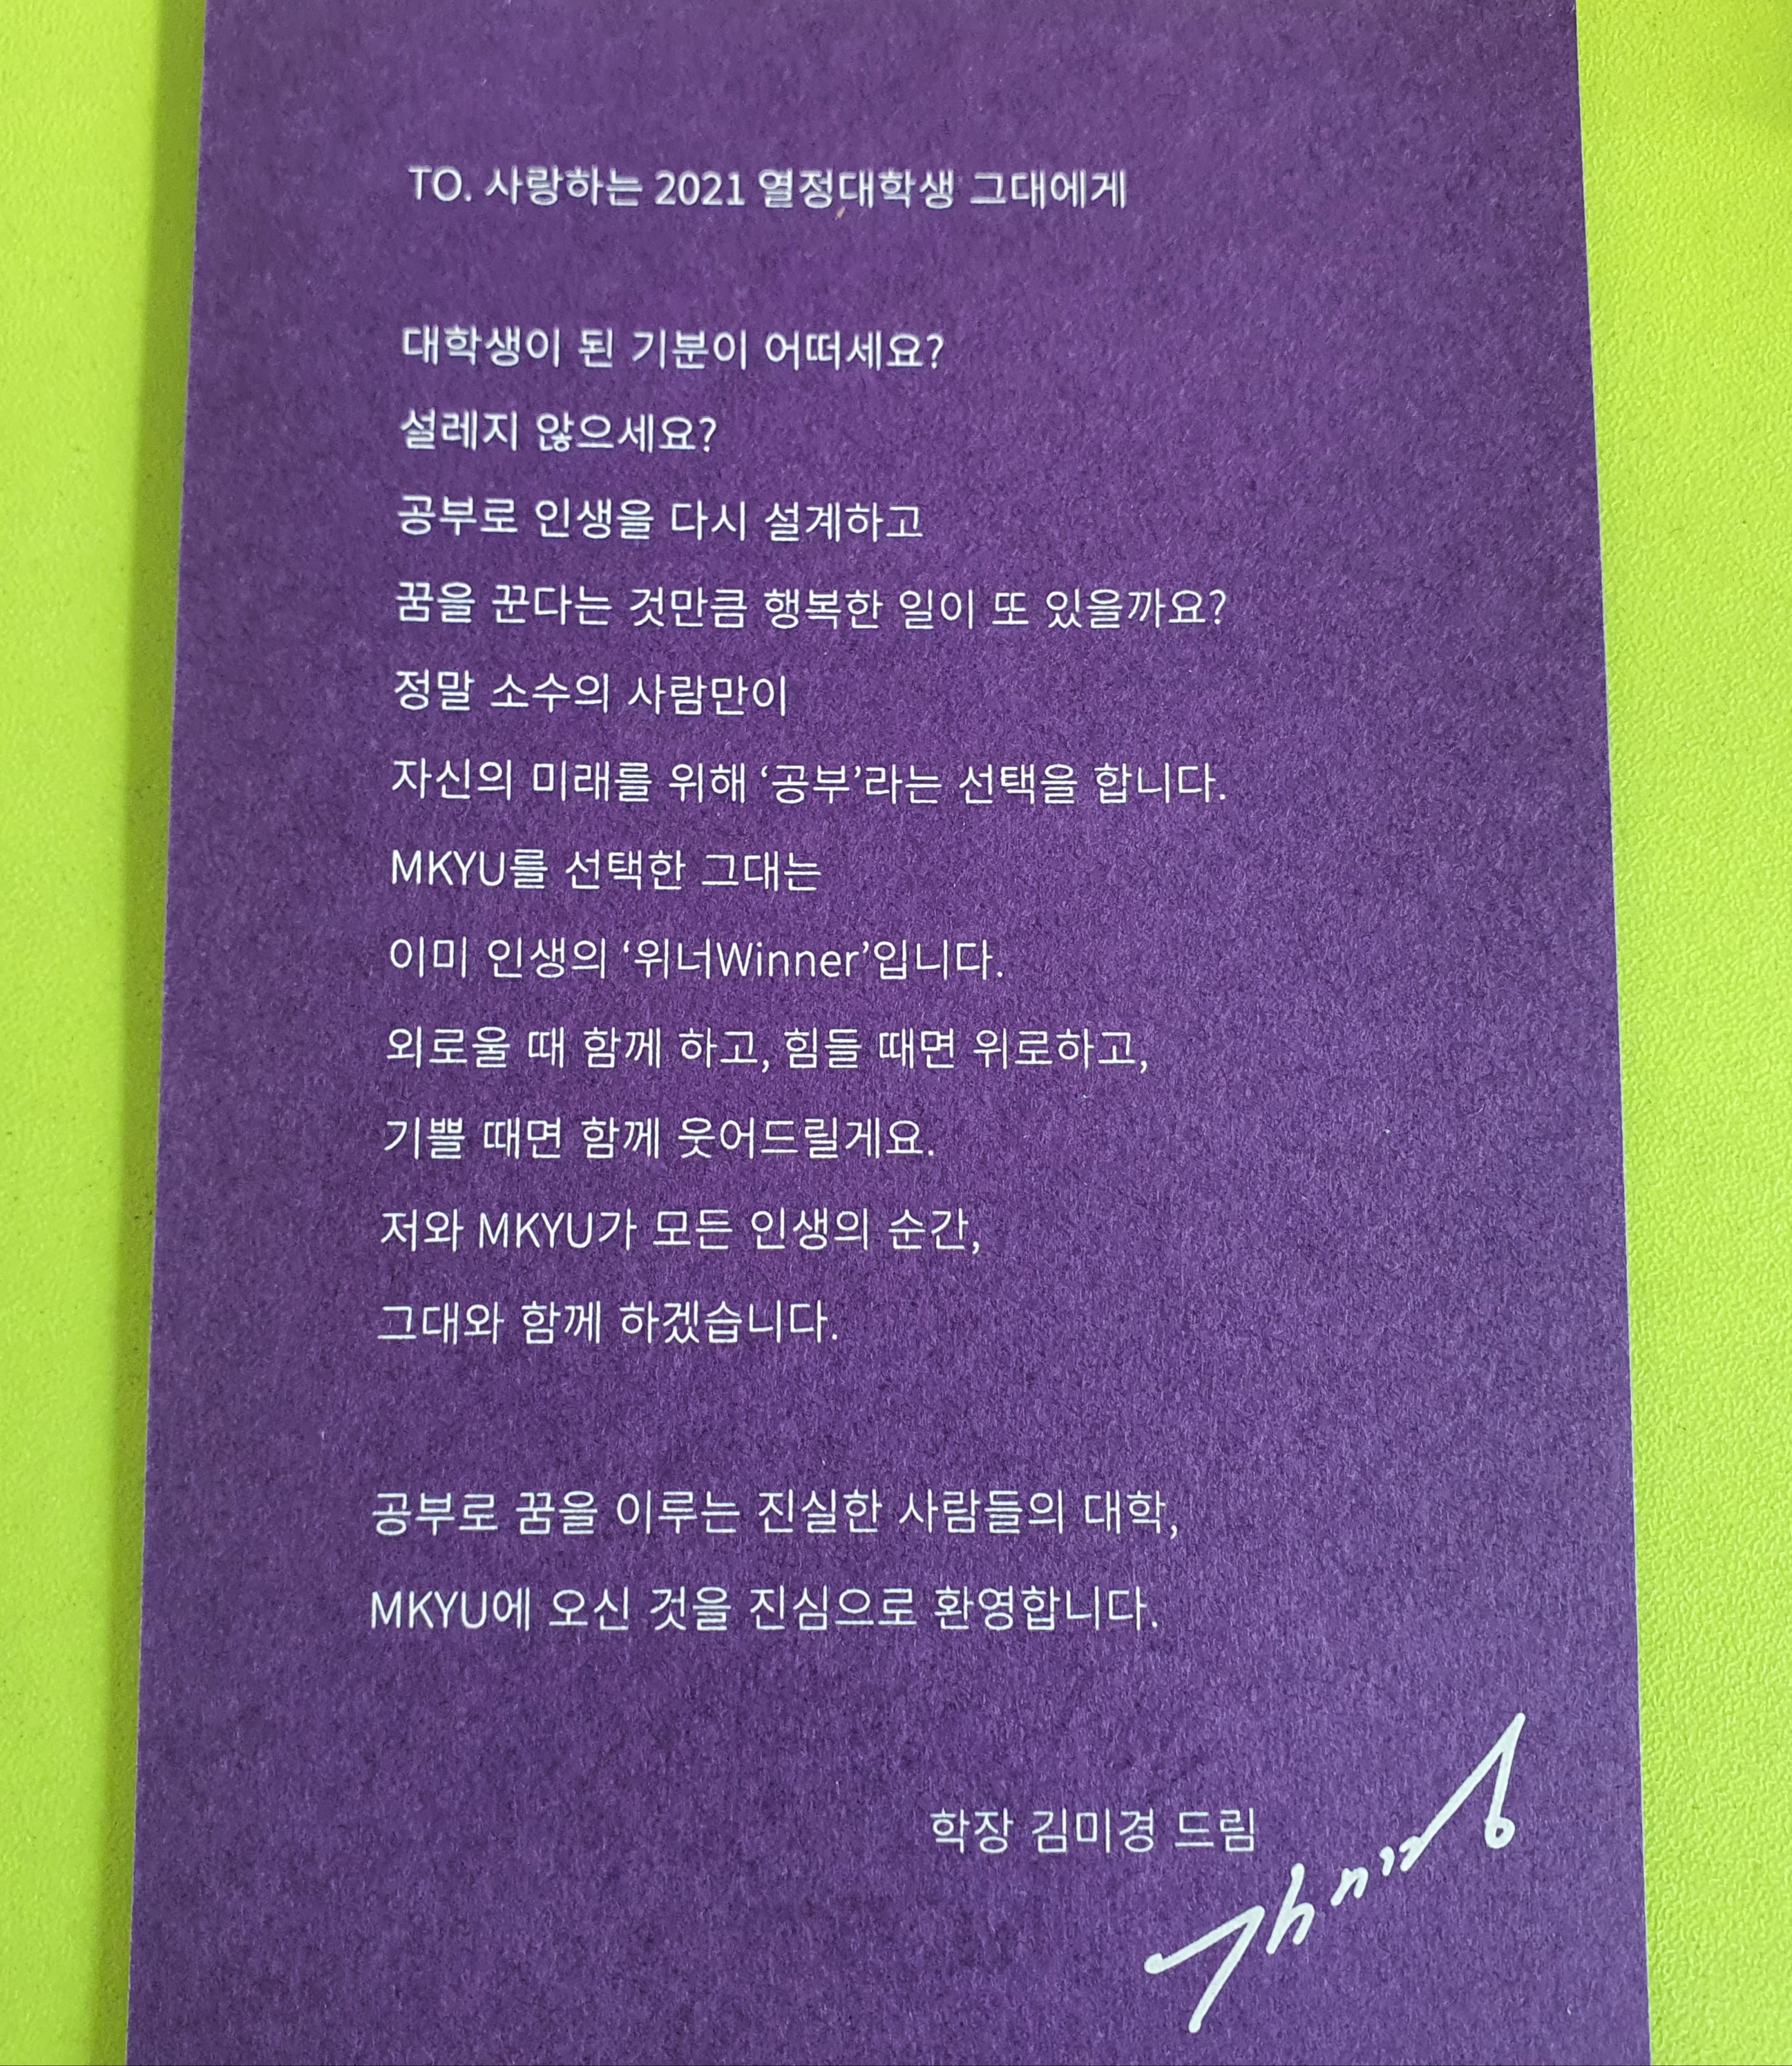 TO. 사랑하는 2021 열정대학생 그대에게
대학생이 된 기분이 어떠세요?
설레지 않으세요?
공부로 인생을 다시 설계하고
꿈을 꾼다는 것만큼 행복한 일이 또 있을까요?
정말 소수의 사람만이
자신의 미래를 위해 ‘공부’라는 선택을 합니다.
MKYU를 선택한 그대는
이미 인생의 ‘위너Winner’입니다.
외로울 때 함께 하고, 힘들 때면 위로하고,
기쁠 때면 함께 웃어드릴게요.
저와 MKYU가 모든 인생의 순간,
그대와 함께 하겠습니다.
공부로 꿈을 이루는 진실한 사람들의 대학,
MKYU에 오신 것을 진심으로 환영합니다.
학장 김미경 드림